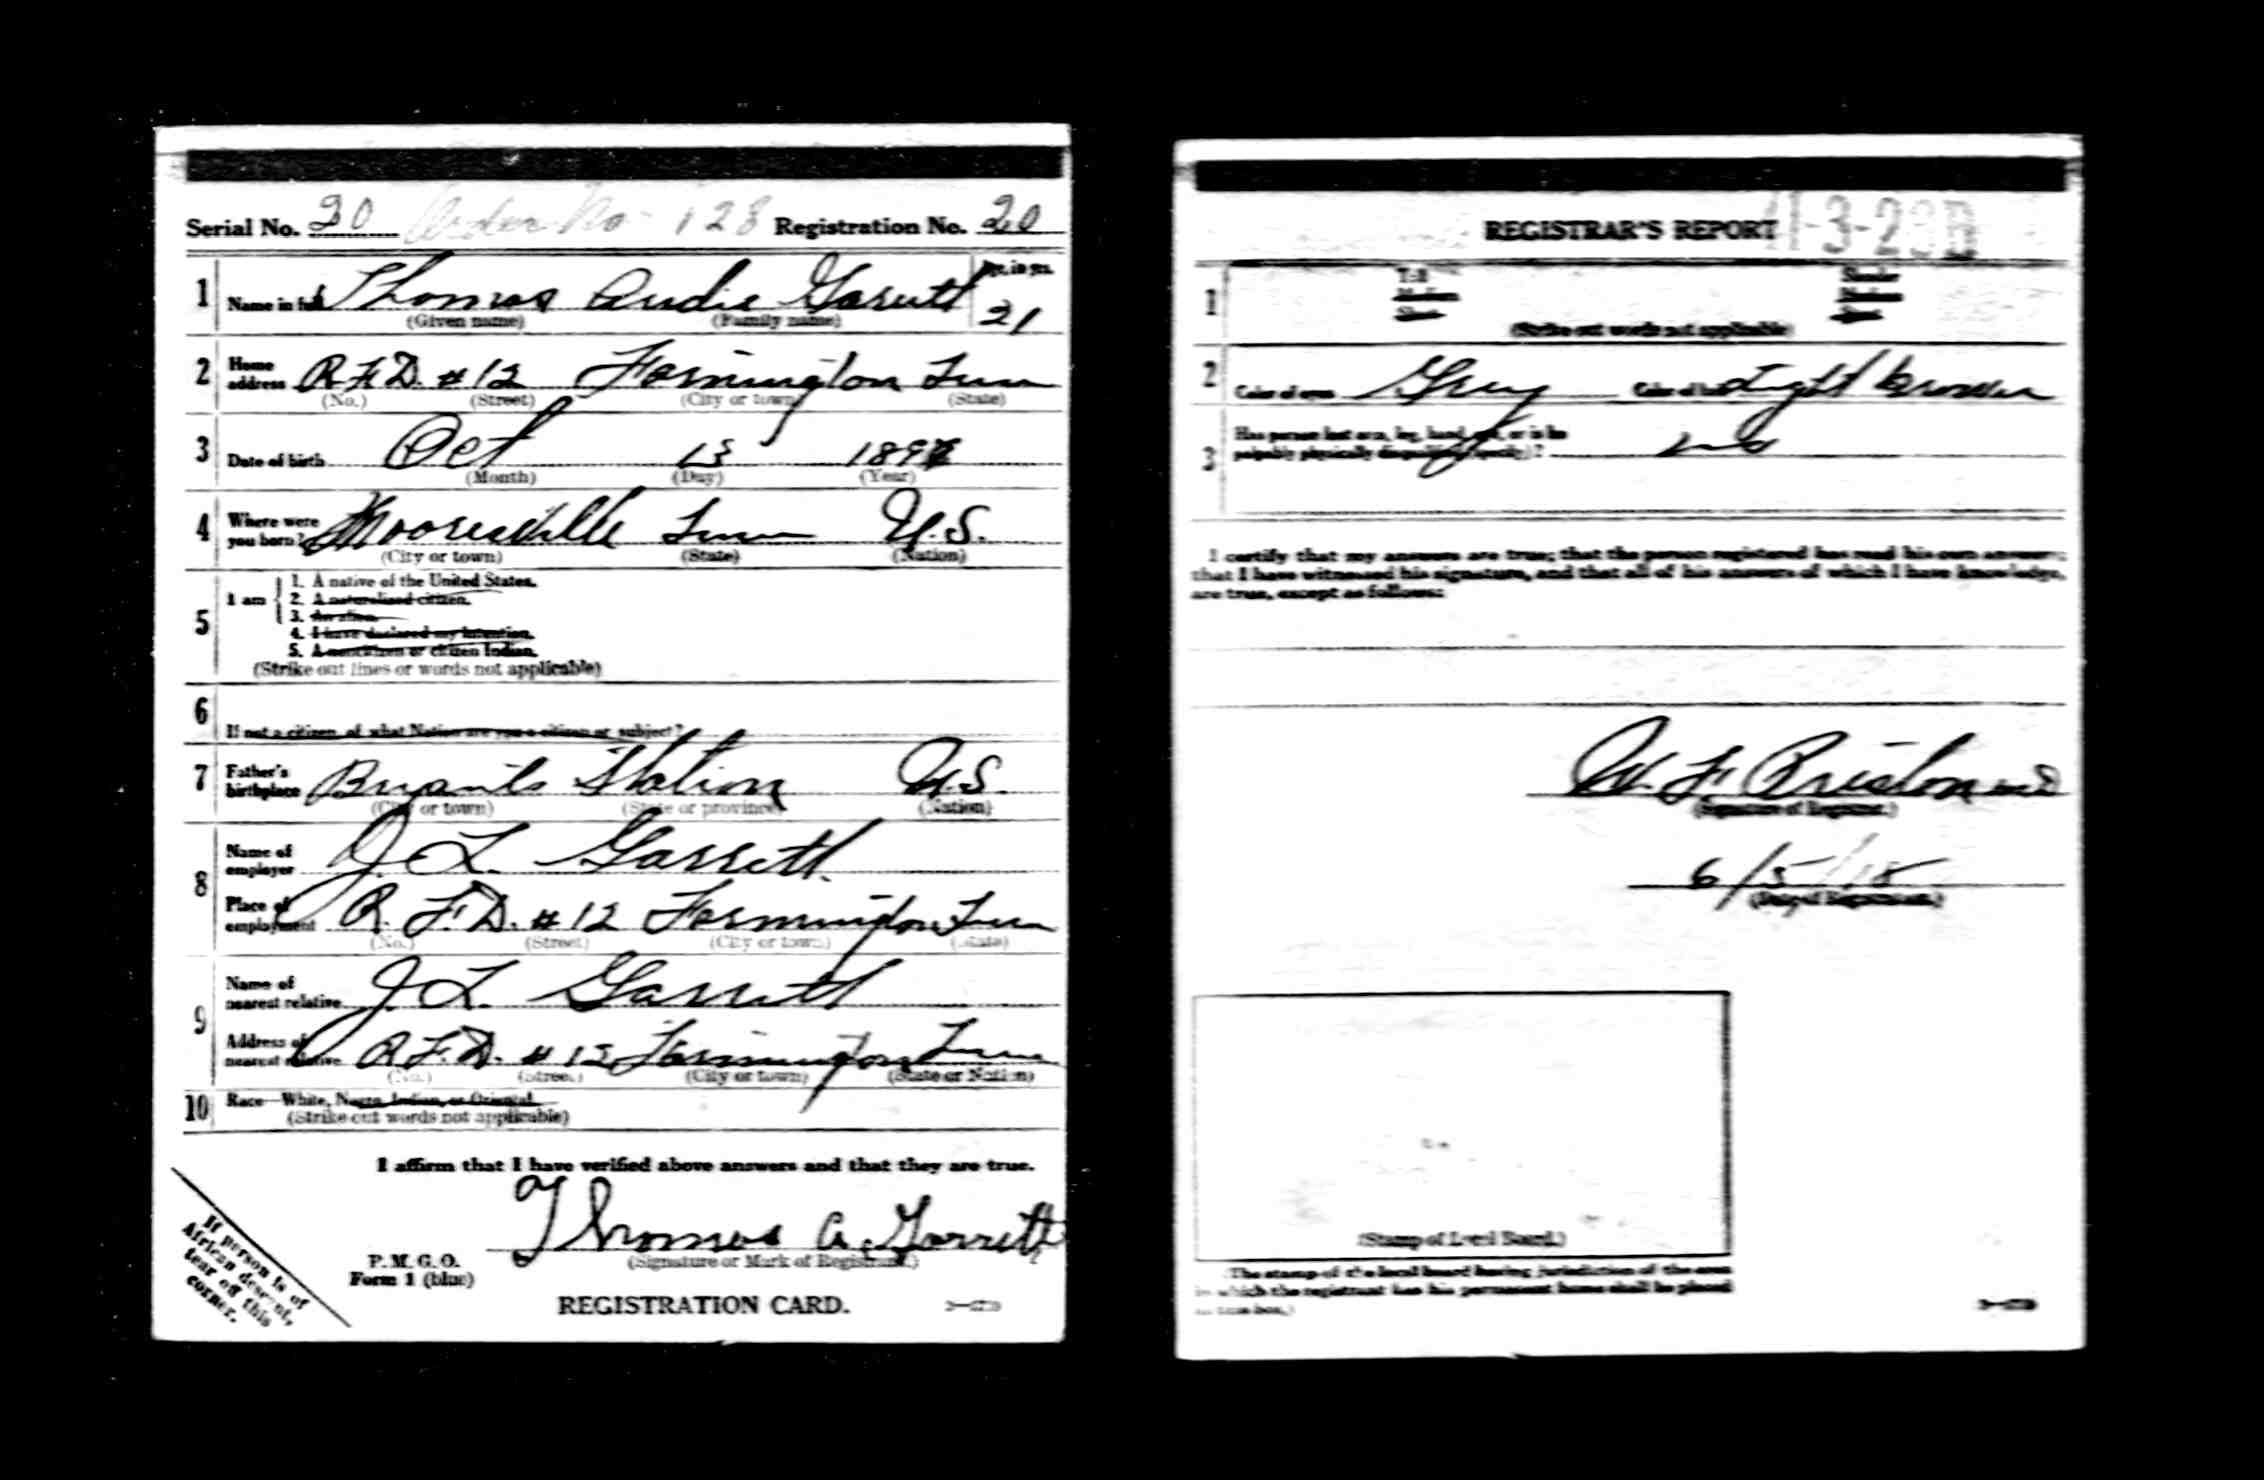 Serial No. 20 Order No - 128 Registration No. 20
1 Name in full Thomas Audie Garrett Age, in yrs. 21
(Given name) (Family name)
2 Home address R.F.D. #12 Farmington Tenn
(No.) (Street) (City or town) (State)
3 Date of birth Oct 13
(Month) (Day) (Year)
4 Where were you born? Mooresville Tenn U.S.
(City or town) (State) (Nation)
5 I am
1. A native of the United States.
2. A naturalized citizen.
3. An alien.
4. I have declared my intention.
5. A noncitizen or citizen Indian.
(Strike out lines or words not applicable)
6 If not a citizen, of what Nation are you a citizen or subject?
7 Father's birthplace Bryants Station U.S.
(City or town) (State or province) (Nation)
8 Name of employer J. L. Garrett.
Place of employment R. F. D. #12 Farmington Tenn
(No.) (Street) (City or town) (State)
9 Name of nearest relative J. L. Garrett
Address of nearest relative R.F.D. #12 Farmington Tenn
(No.) (Street) (City or town) (State or Nation)
10 Race—White, Negro, Indian, or Oriental
(Strike out words not applicable)
I affirm that I have verified above answers and that they are true.
Thomas A. Garrett
(Signature or Mark of Registrant.)
P. M. G. O.
Form 1 (blue)
REGISTRATION CARD.
If person is of
African descent,
tear off this
corner.
REGISTRAR'S REPORT
1 Tall Slender
Medium Medium
Short Stout
(Strike out words not applicable)
2 Color of eyes Grey Color of hair Light brown
3 Has person lost arm, leg, hand, eye, or is he
palpably physically disqualified (specify)? no
I certify that my answers are true; that the person registered has read his own answers;
that I have witnessed his signature, and that all of his answers of which I have knowledge,
are true, except as follows:
(Signature of Registrar.)
6/5/18
(Date of Registration.)
(Stamp of Local Board.)
(The stamp of the local board having jurisdiction of the area
in which the registrant has his permanent home shall be placed
in this box.)